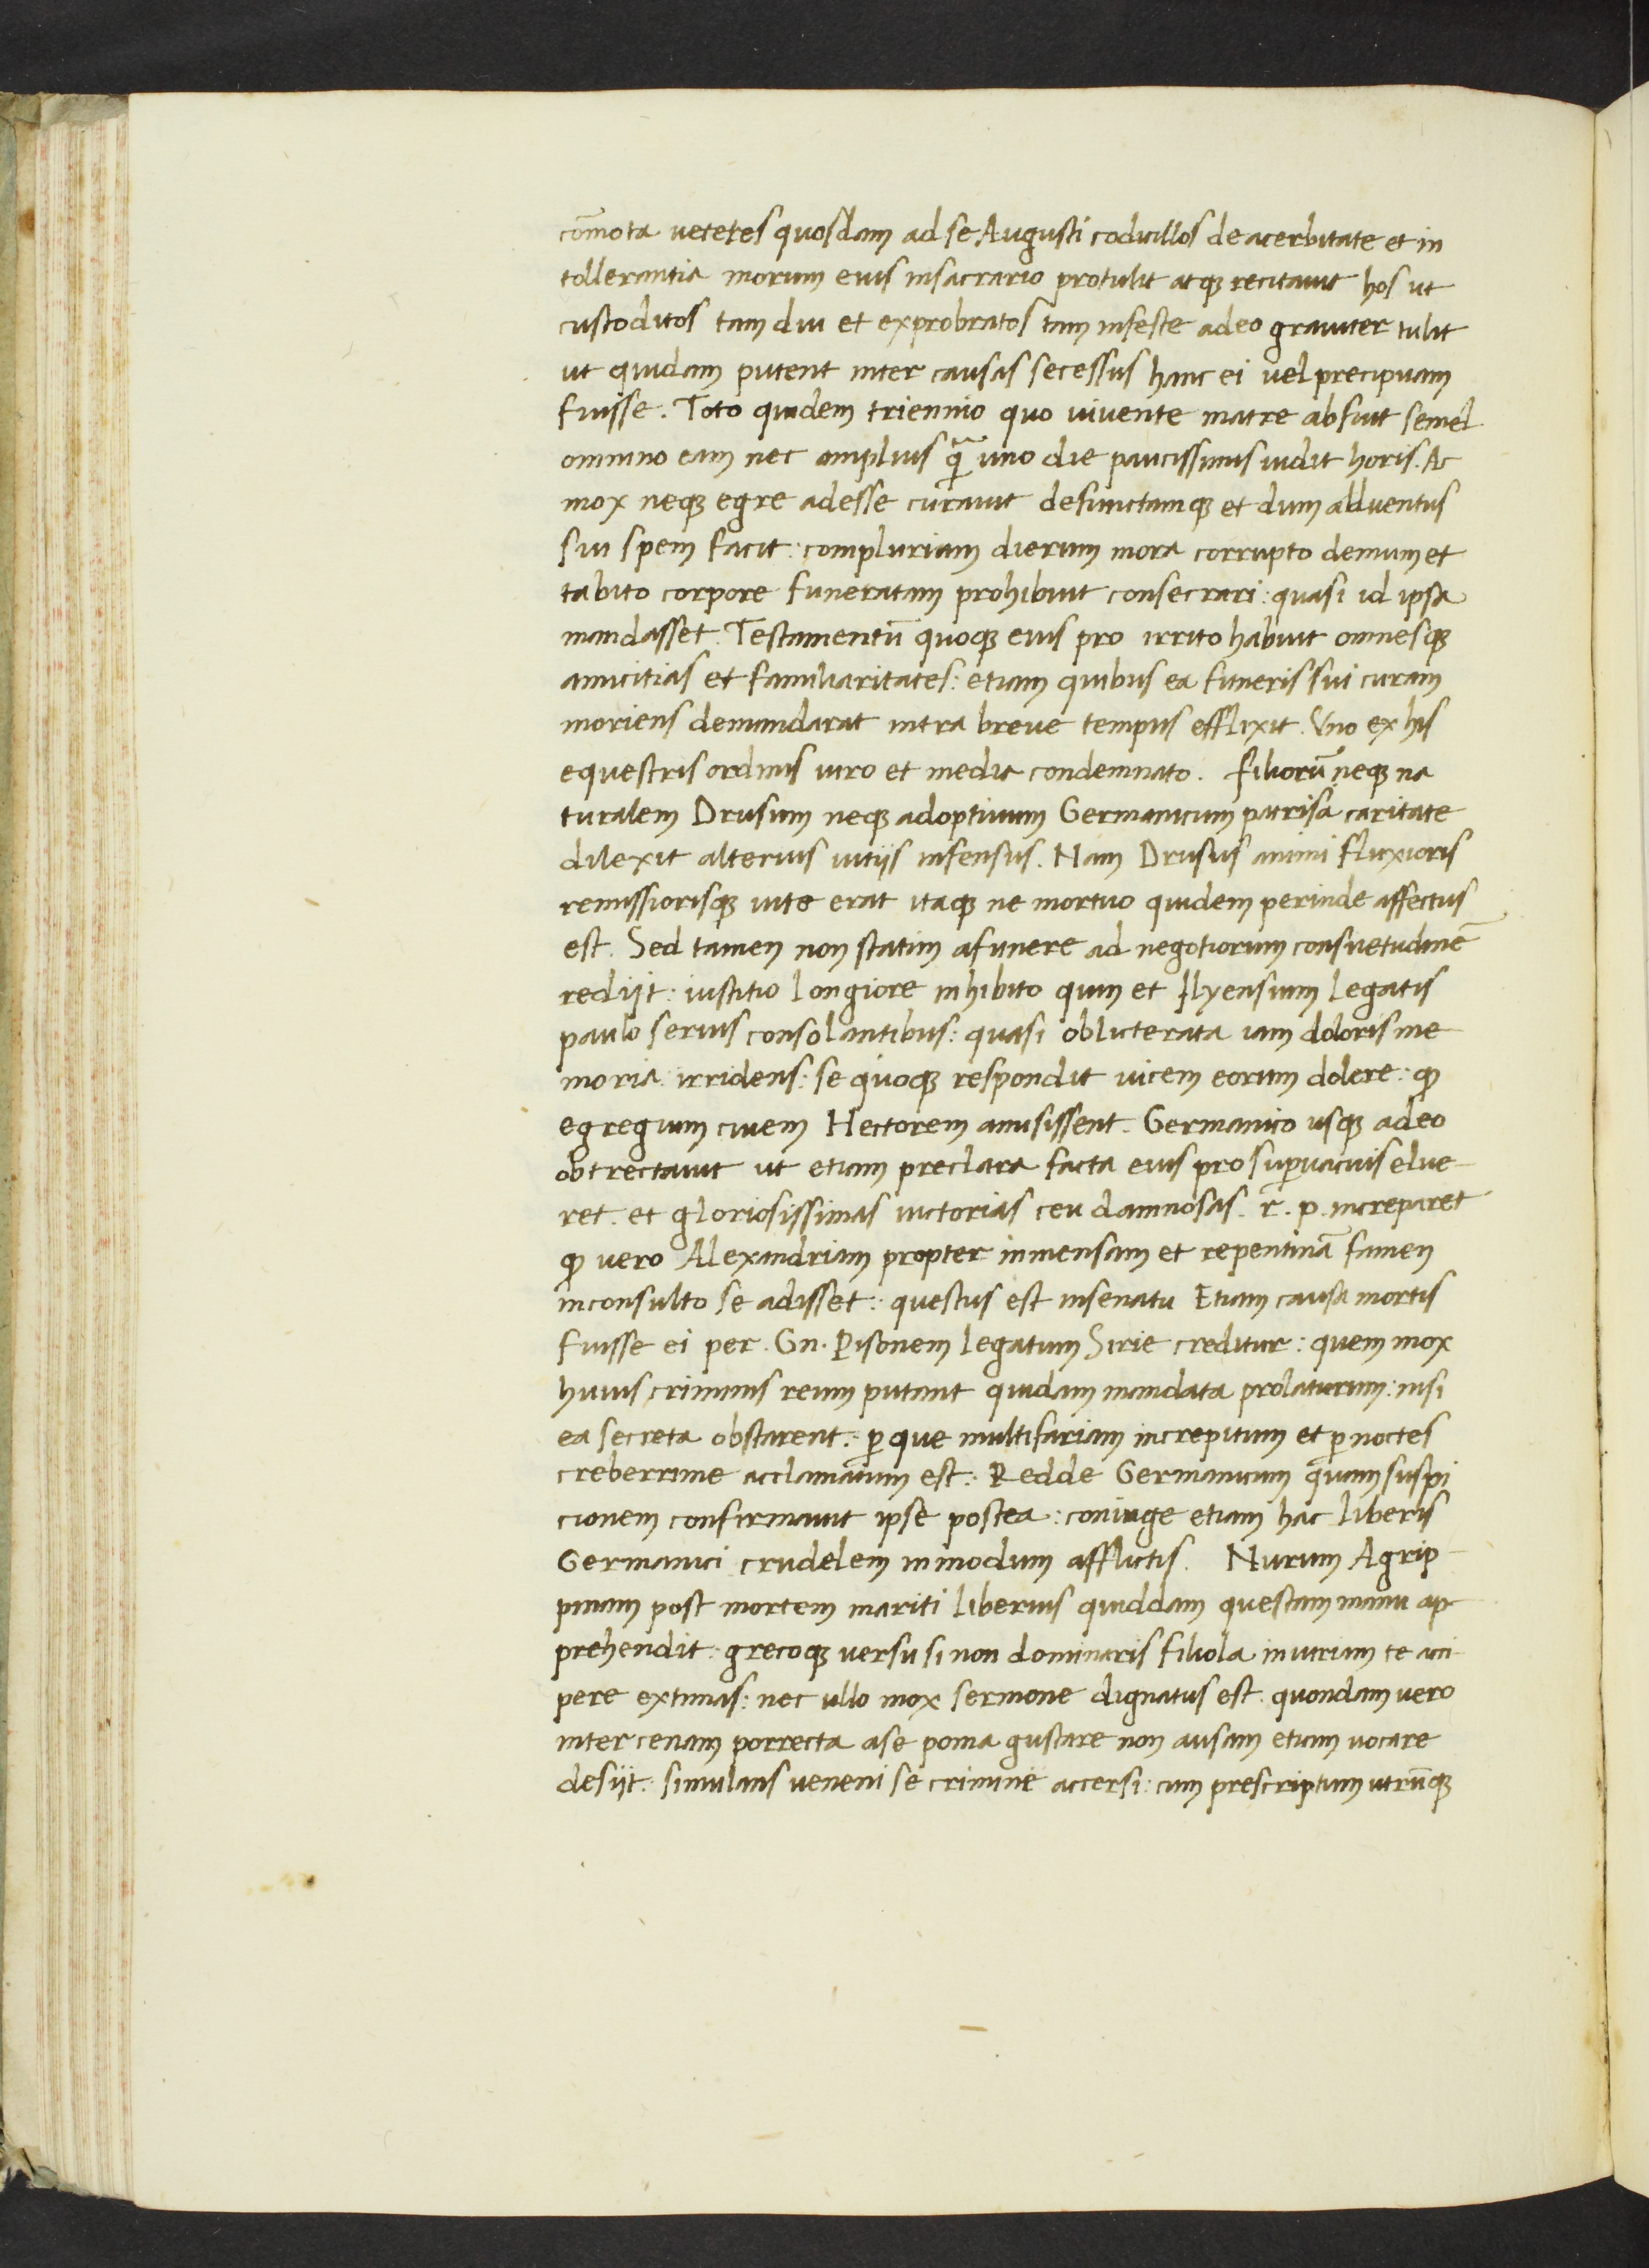 cōmota ueteres quosdam ad se Augusti codicillos de acerbitate et in
tollerantia morum eius in sacrario protulit atq; recitauit hos ut
custoditos tam diu et exprobratos tam infeste adeo grauiter tulit
ut quidam putent inter causas secessus hanc ei uel precipuam
fuisse. Toto quidem triennio quo uiuente matre absuit semel
omnino eam nec amplius q̄ uno die paucissimis uidit horis. Ac
mox neq; egre adesse curauit defunctamq; et dum aduentus
sui spem facit: complurium dierum mora corrupto demum et
tabito corpore funeratam prohibuit consecrari: quasi id ipsa
mandasset. Testamentū quoq; eius pro irrito habuit omnesq;
amicitias et familiaritates: etiam quibus ea funeris sui curam
moriens demandarat intra breue tempus efflixit. Vno ex his
equestris ordinis uiro et media condemnato. filiorū neq; na
turalem Drusum neq; adoptiuum Germanicum patrisa caritate
dilexit alterius uitijs infensus. Nam Drusus animi fluxioris
remissiorisq; uite erat itaq; ne mortuo quidem perinde affectus
est. Sed tamen non statim a funere ad negotiorum consuetudinē
redijt: iustitio longiore inhibito quin et Ilyensium legatis
paulo serius consolantibus: quasi obliterata iam doloris me
moria irridens: se quoq; respondit uicem eorum dolere: ꝙ
egregium ciuem Hectorem amisissent. Germanico usq; adeo
obtrectauit ut etiam preclara facta eius pro suꝑuacuis elue-
ret. et gloriosissimas uictorias ceu damnosas. r̄. p. increparet
ꝙ uero Alexandriam propter inmensam et repentinā famen
inconsulto se adisset: questus est in senatu Etiam causa mortis
fuisse ei per. Gn. Pisonem legatum Sirie creditur: quem mox
huius criminis reum putant quidam mandata prolaturum: nisi
ea secreta obstarent. ꝑ que multifariam increpitum et ꝑ noctes
creberrime acclamatum est: Redde Germanicum quam suspi
cionem confirmauit ipse postea: coniuge etiam hac liberis
Germanici crudelem in modum afflictis. Nurum Agrip-
pinam post mortem mariti liberius quiddam questam manu ap-
prehendit: grecoq; uersu si non dominaris filiola iniuriam te acci-
pere extimas: nec ullo mox sermone dignatus est. quondam uero
inter cenam porrecta a se poma gustare non ausam etiam uocare
desijt: simulans ueneni se crimine accersi: cum prescriptum utrūq;